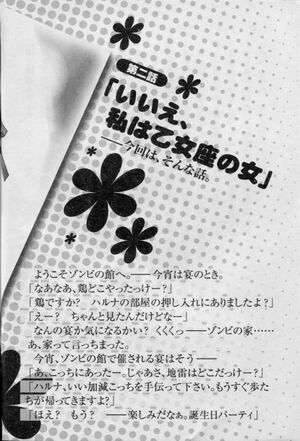 第二話
「いいえ、
私は乙女座の女」
――今回は、そんな話。
ようこそゾンビの館へ。――今宵は宴のとき。
「なあなあ、鶏どこやったっけー？」
「鶏ですか？　ハルナの部屋の押し入れにありましたよ？」
「えー？　ちゃんと見たんだけどなー」
なんの宴か気になるかい？　くくくっ――ゾンビの家……
あ、家って言っちまった。
今宵、ゾンビの館で催される宴はそう――
「あ、こっちにあったー。じゃあさ、地雷はどこだっけー？」
「ハルナ、いい加減こっちを手伝って下さい。もうすぐ歩た
ちが帰ってきますよ？」
「ほえ？　もう？　――楽しみだなぁ。誕生日パーティ」